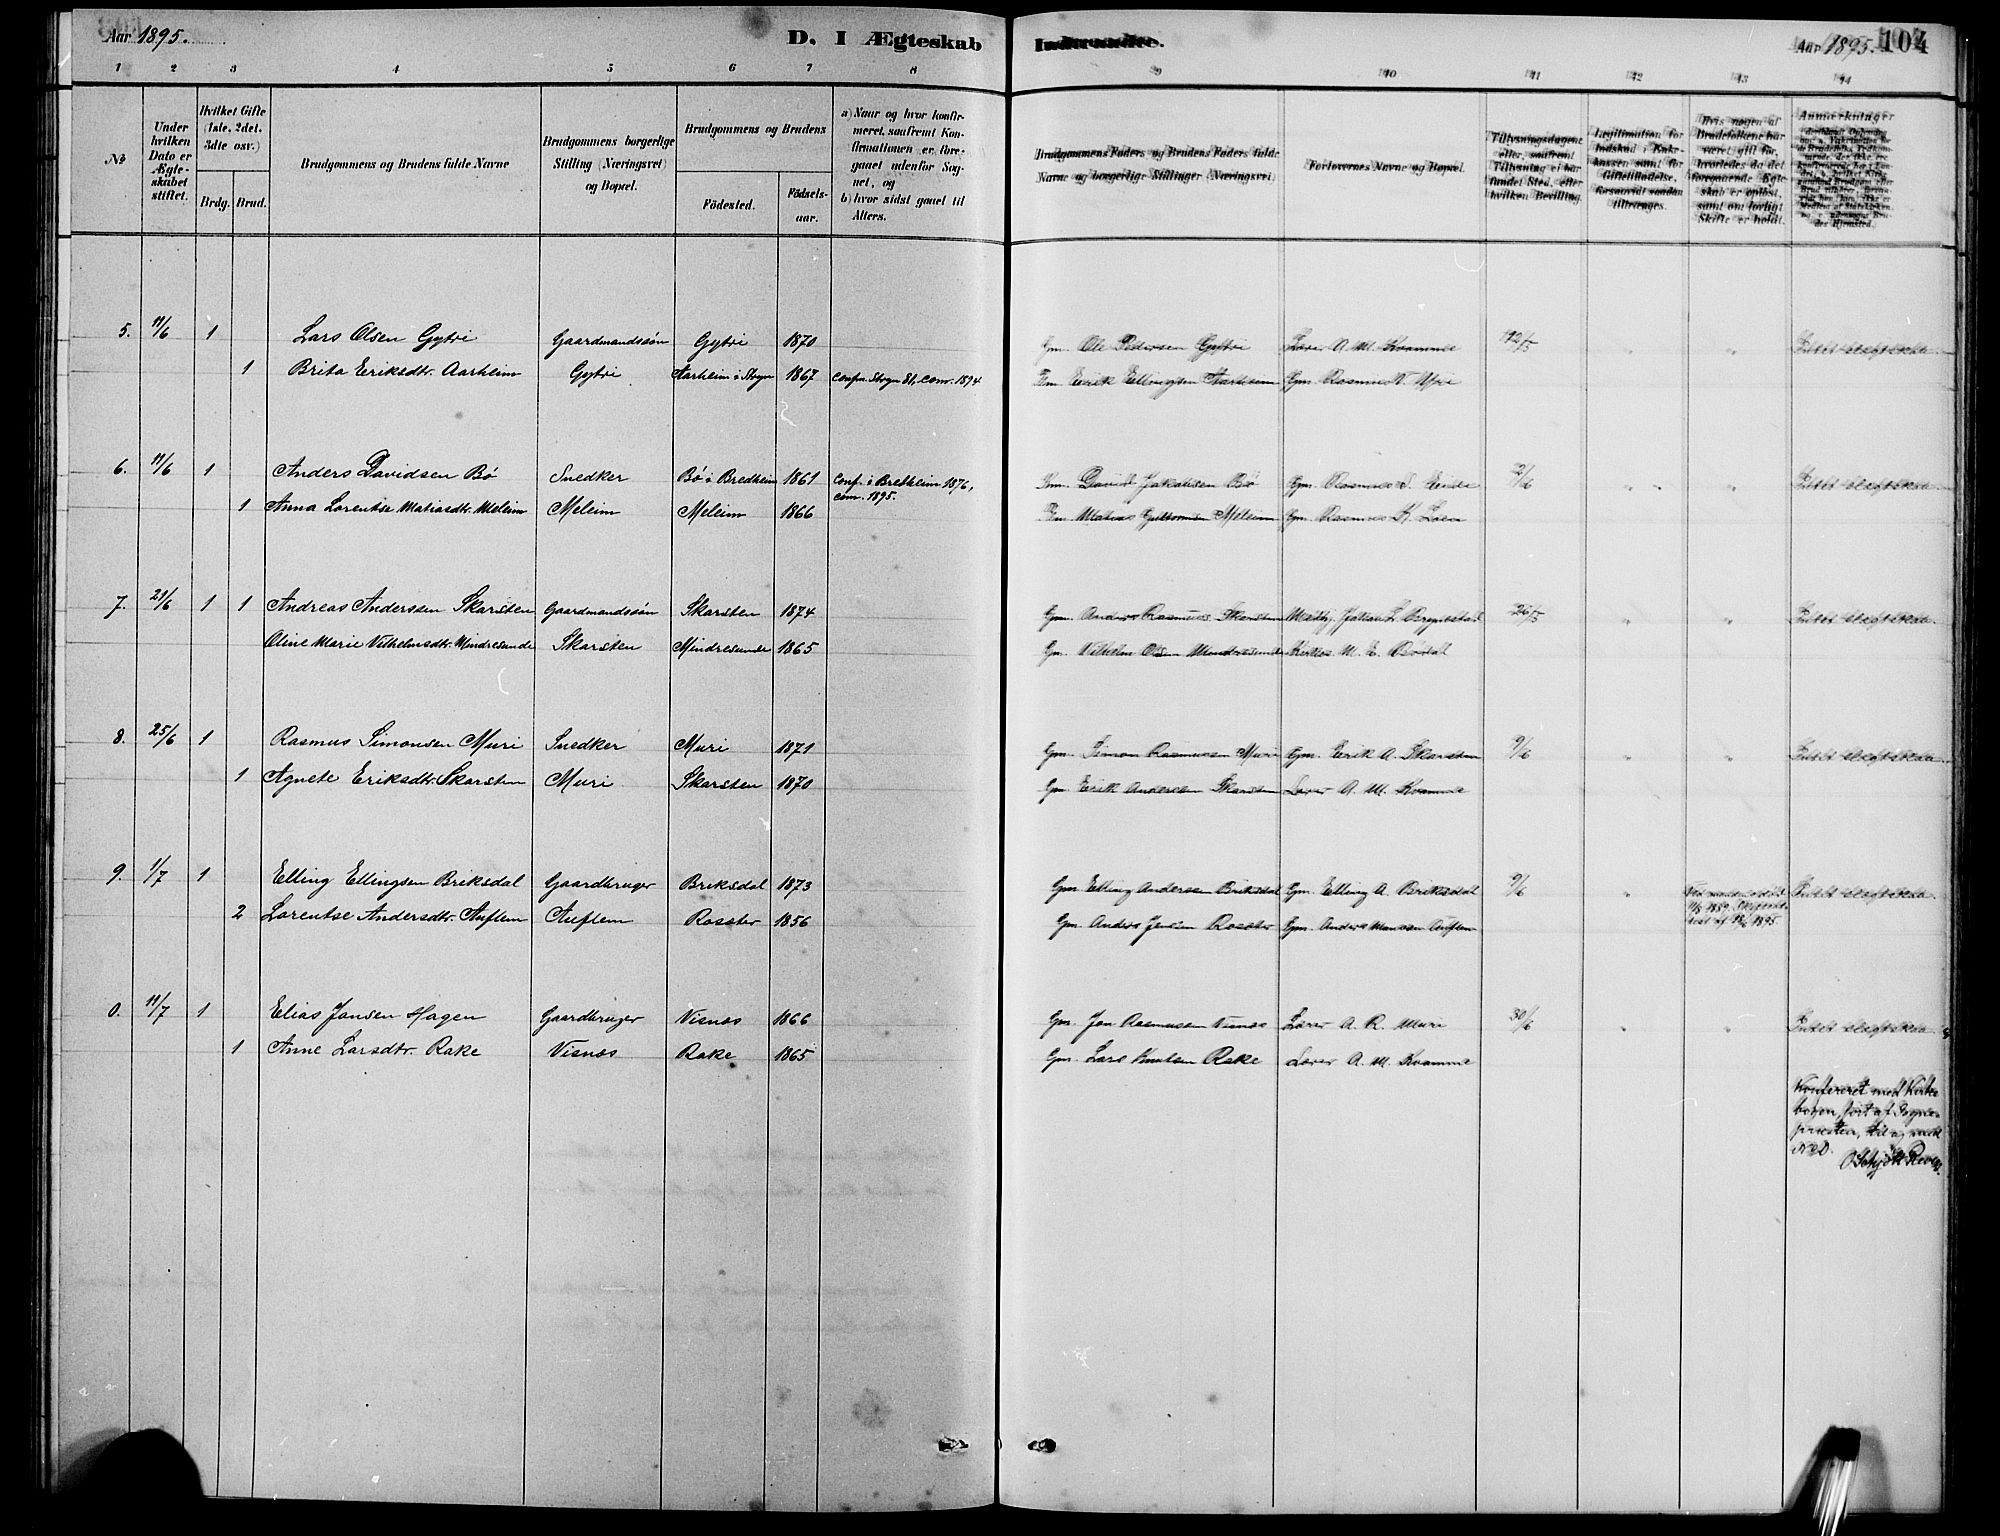 Aar 1895.
D. I Ægteskab Indtraadte.
Aar 1895. 104
1 2 3 4 5 6 7 8 9 10 11 12 13 14
No
Under hvilken Dato er Ægteskabet stiftet.
Hvilket Gifte (1ste, 2det, 3die osv.)
Brdg. Brud.
Brudgommens og Brudens fulde Navne
Brudgommens borgerlige Stilling (Næringsvei) og Bopæl.
Brudgommens og Brudens
Fødested.
Fødselsaar.
a) Naar og hvor konfirmeret, saafremt Konfirmationen er foregaaet udenfor Sognet, og
b) hvor sidst gaaet til Alters.
Brudgommens Faders og Brudens Faders fulde Navne og borgerlige Stillinger (Næringsvei)
Forlovernes Navne og Bopæl.
Tillysningsdagene eller, saafremt Tillysning ei har fundet Sted, efter hvilken Bevilling.
Legitimation for Indskud i Enkekassen samt for Giftetilladelse, forsaavidt saadan tiltrænges.
Hvis nogen af Brudefolkene har været gift før, hvorledes da det foregaaende Ægteskab er opløst, samt om lovligt Skifte er holdt.
Anmærkninger
5. 11/6 1 Lars Olsen Gytri Gaardmandssøn Gytri 1870 Gm. Ole Pedersen Gytri Lærer A. M. Kvamme 12/5 " " Intet slegtskab
1 Brita Eriksdtr. Aarheim Gytri Aarheim i Stryn 1867 Conf. Stryn 81, com. 1894 Erik Ellingsen Aarheim Gm. Rasmus
6. 11/6 1 Anders Davidsen Bø Snedker Bø i Bredheim 1861 Conf. i Bretheim 1876, com. 1895. David Jakobsen Bø Gm. Rasmus S. Eide 2/6 " " Intet slegtskab
1 Anna Lorentse Matiasdtr. Meleim Meleim Meleim 1866 Matias Guttormsen Meleim Gm. Rasmus K. Loen
7. 21/6 1 1 Andreas Anderssen Skarsten Gaardmandssøn Skarsten 1874 Gm. Anders Rasmus. Skarsten Jakob L. Bryggestad 26/5 " " Intet slegtskab
Oline Marie Vilhelmsdtr. Mindresunde Skarsten Mindresunde 1865 Gm. Vilhelm Olsen Mindresunde M. E. Bødal
8. 25/6 1 Rasmus Simonsen Muri Snedker Muri 1871 Gm. Simon Rasmussen Muri Gm. Erik A. Skarsten 9/6 " " Intet slegtskab
1 Agnete Eriksdtr. Skarsten Muri Skarsten 1870 Gm. Erik Andersen Skarsten Lærer A. M. Kvamme
9. 1/7 1 Elling Ellingsen Briksdal Gaardbruger Briksdal 1873 Gm. Elling Andersen Briksdal Gm. Elling A. Briksdal 9/6 " Intet slegtskab
2 Lorentse Andersdtr. Auflem Auflem Rosster 1856 Gm. Anders Jensen Rosster Gm. Anders Monsen Auflem 1889. 1895.
0. 11/7 1 Elias Jonsen Hagen Gaardbruger Visnæs 1866 Gm. Jon Rasmussen Visnæs Lærer A. R. Muri 30/6 " " Intet slegtskab
1 Anne Larsdtr. Rake Visnæs Rake 1865 Gm. Lars Knutsen Rake Lærer A. M. Kvamme
Konfereret med Kirke
bogen, ført af Sogne
presten, til og med
No 20.